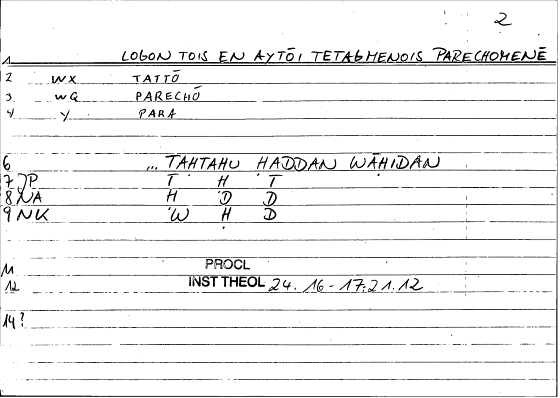 2
1 LOGON TOIS EN AYTŌI TETAGMENOIS PARECHOMENĒ
2 WX TATTŌ
3 WQ PARECHŌ
4 Y PARA
6 ... TAḤTAHU ḤADDAN WĀḤIDAN
7 JP T Ḥ T
8 NA Ḥ D D
9 NK W Ḥ D
11 PROCL
12 INST THEOL 24. 16-17.21.12
14?